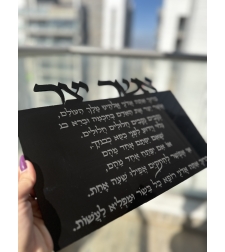 אשר יצר
ברוך אתה אדוני אלוהינו מלך העולם,
אשר יצר את האדם בחכמה וברא בו
נקבים נקבים חלולים חלולים.
גלוי וידוע לפני כסא כבודך,
שאם יסתם אחד מהם
או אם יפתח אחד מהם
אי אפשר להתקיים אפילו שעה אחת.
ברוך אתה אדוני רופא כל בשר ומפליא לעשות.